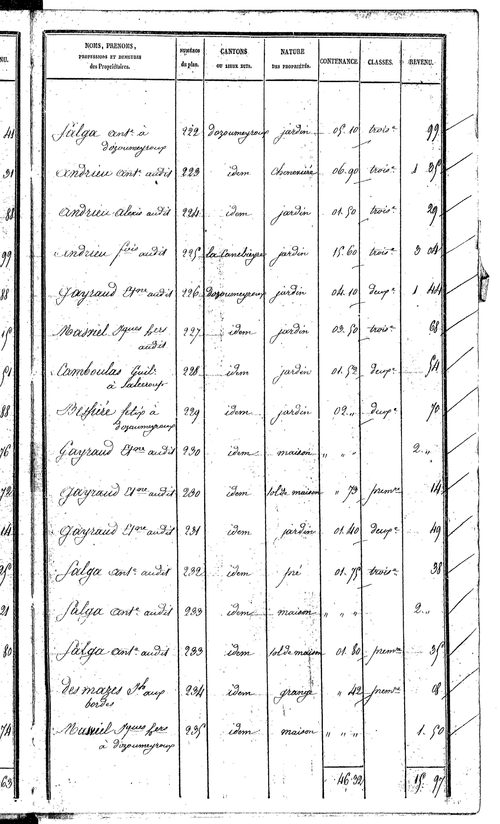 NOMS, PRENOMS, PROFESSIONS ET DEMEURES des Propriétaires. NUMÉROS du plan. CANTONS OU LIEUX DITS. NATURE DES PROPRIÉTÉS. CONTENANCE. CLASSES. REVENU.
41 Salga ant.e à dozoumeyroux 222 dozoumeyroux jardin 05.10 trois.e 99
31 andrieu ant.e audit 223 idem chenevière 06.90 trois.e 1 35
88 andrieu alexis audit 224 idem jardin 01.50 trois.e 29
99 andrieu fois audit 225 jardin 15.60 trois.e 3 04
88 Gayraud Et.ne audit 226 dozoumeyroux jardin 04.10 deux.e 1 44
15 hers audit 227 idem jardin 03.50 trois.e 68
51 Camboulas Guil. à 228 idem jardin 01.52 deux.e 54
88 felix à dozoumeyroux 229 idem jardin 02 „ deux.e 70
76 Gayraud Et.ne audit 230 idem maison „ „ 2 „
72 Gayraud Et.ne audit 230 idem sol de maison „ 73 prem.re 14
14 Gayraud Et.ne audit 231 idem jardin 01.40 deux.e 49
25 Salga ant.e audit 232 idem pré 01.75 trois.e 38
21 Salga ant.e audit 233 idem maison „ „ „ 2 „
80 Salga ant.e audit 233 idem sol de maison 01.80 prem.re 35
des mazes aux bordes 234 idem grange „ 42 prem.re 08
74 hers à dozoumeyroux 235 idem maison „ „ „ 1.50
63 46.32 15 97